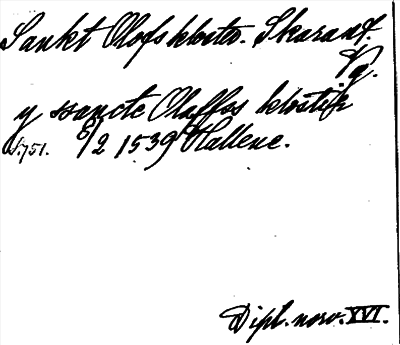 Sankt Olofs kloster. Skarant.
Vg.
y ssancte Olaffss klostir
S. 751. 6/2 1539 Hallene.
Dipl. norv. XVI.